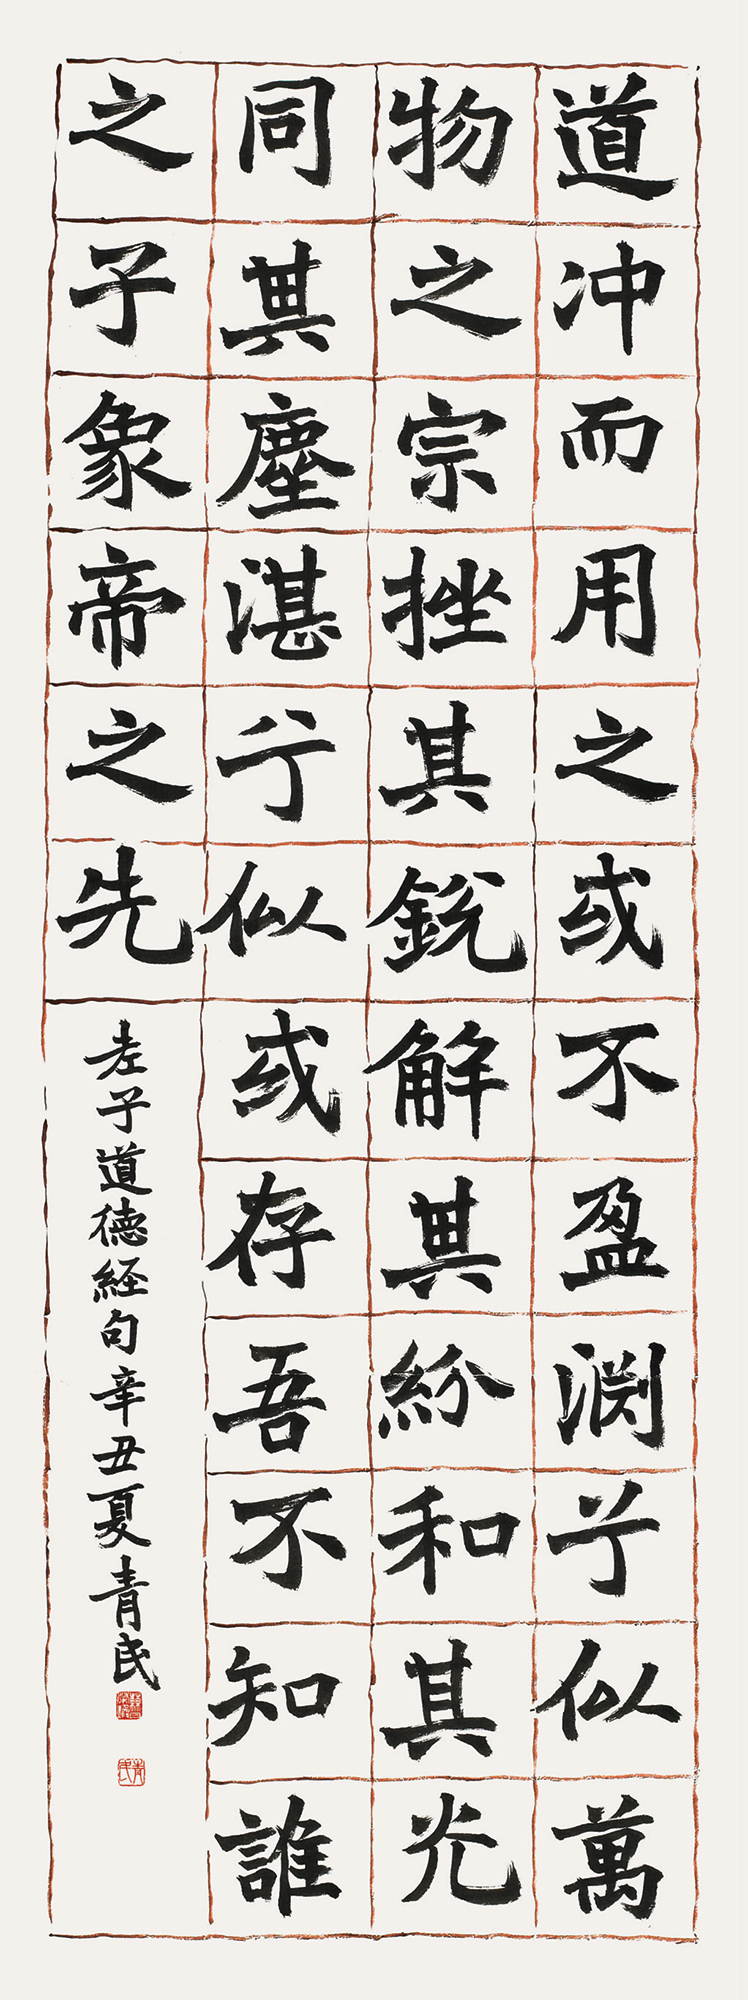 道冲而用之或不盈渊兮似萬
物之宗挫其銳解其紛和其光
同其塵湛兮似或存吾不知誰
之子象帝之先
老子道德経句辛丑夏青民
青民